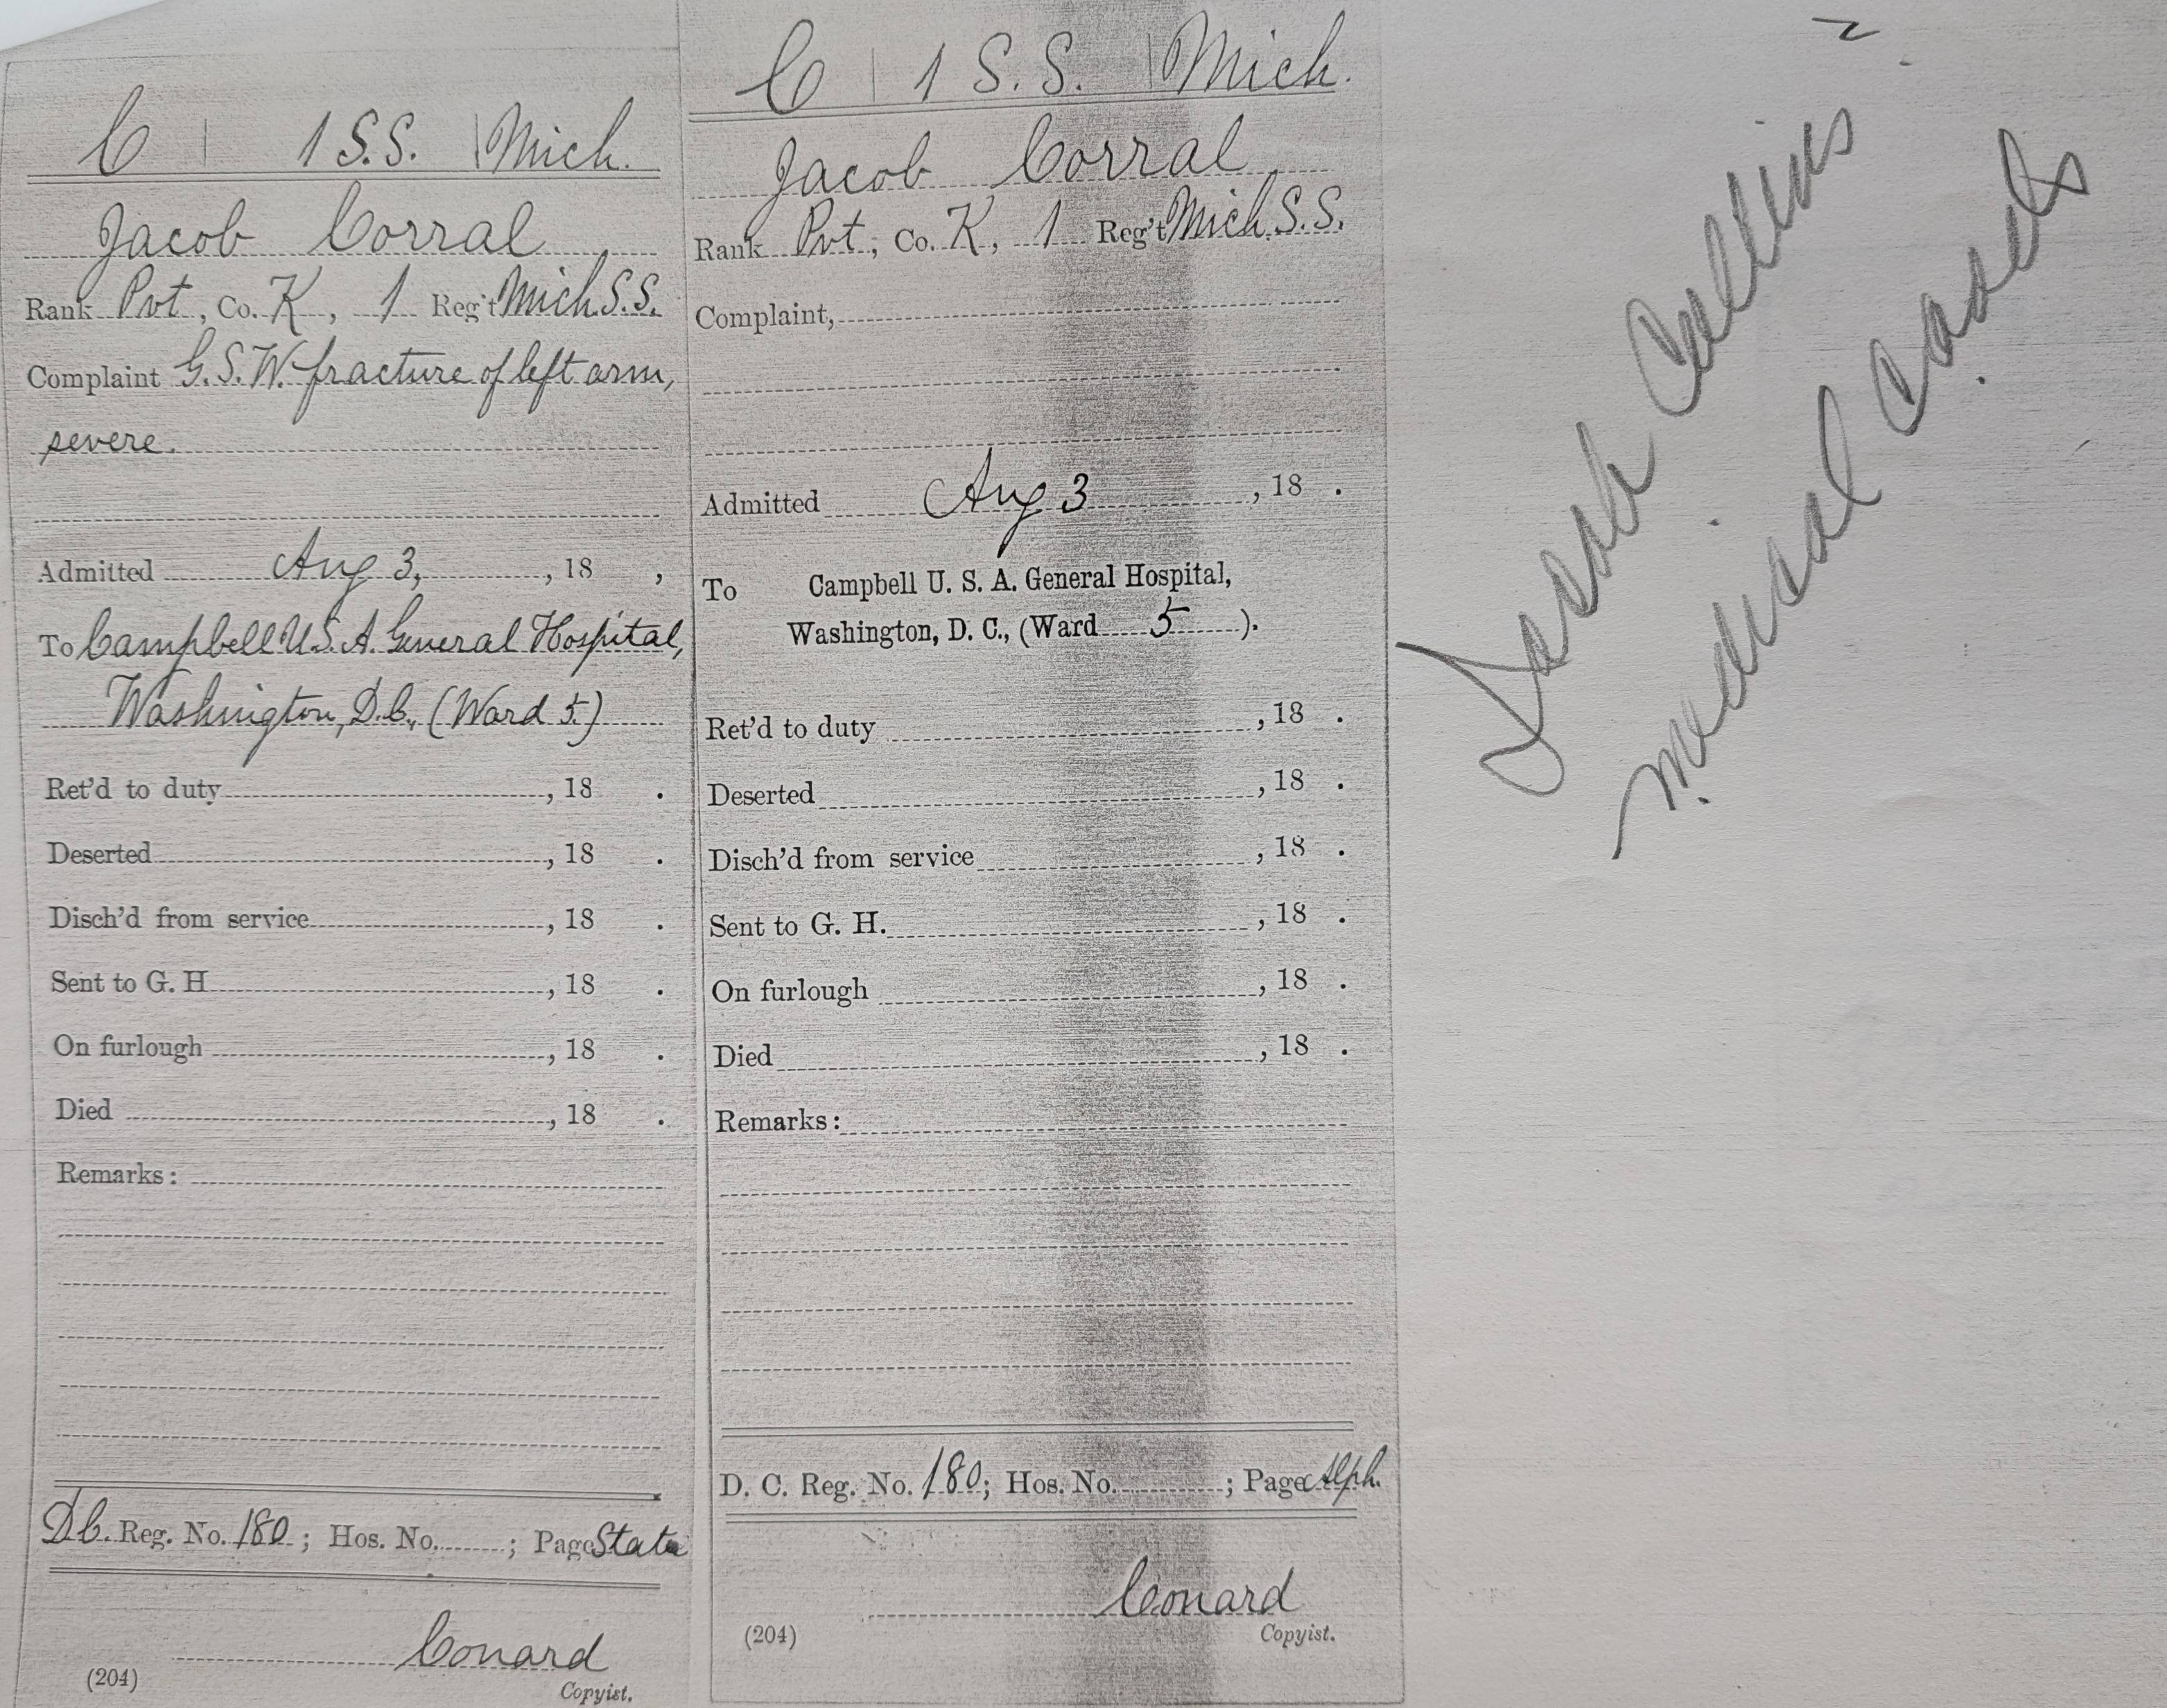 C | 1 S.S. | Mich.
Jacob Corral
Rank Pvt, Co. K, 1 Reg't Mich. S.S.
Complaint G.S.W. fracture of left arm,
severe.
Admitted Aug 3, , 18 ,
To Campbell U.S.A. General Hospital,
Washington, D.C., (Ward 5.)
Ret'd to duty , 18 .
Deserted , 18 .
Disch'd from service , 18 .
Sent to G. H. , 18 .
On furlough , 18 .
Died , 18 .
Remarks:
D.C. Reg. No. 180; Hos. No. ; Page State
Conard
(204) Copyist.
C | 1 S.S. | Mich.
Jacob Corral
Rank Pvt, Co. K, 1 Reg't Mich. S.S.
Complaint,
Admitted Aug 3 , 18 .
To Campbell U. S. A. General Hospital,
Washington, D. C., (Ward 5 ).
Ret'd to duty , 18 .
Deserted , 18 .
Disch'd from service , 18 .
Sent to G. H. , 18 .
On furlough , 18 .
Died , 18 .
Remarks:
D. C. Reg. No. 180; Hos. No. ; Page Alph.
Conard
(204) Copyist.
Jacob Collins
medical cards